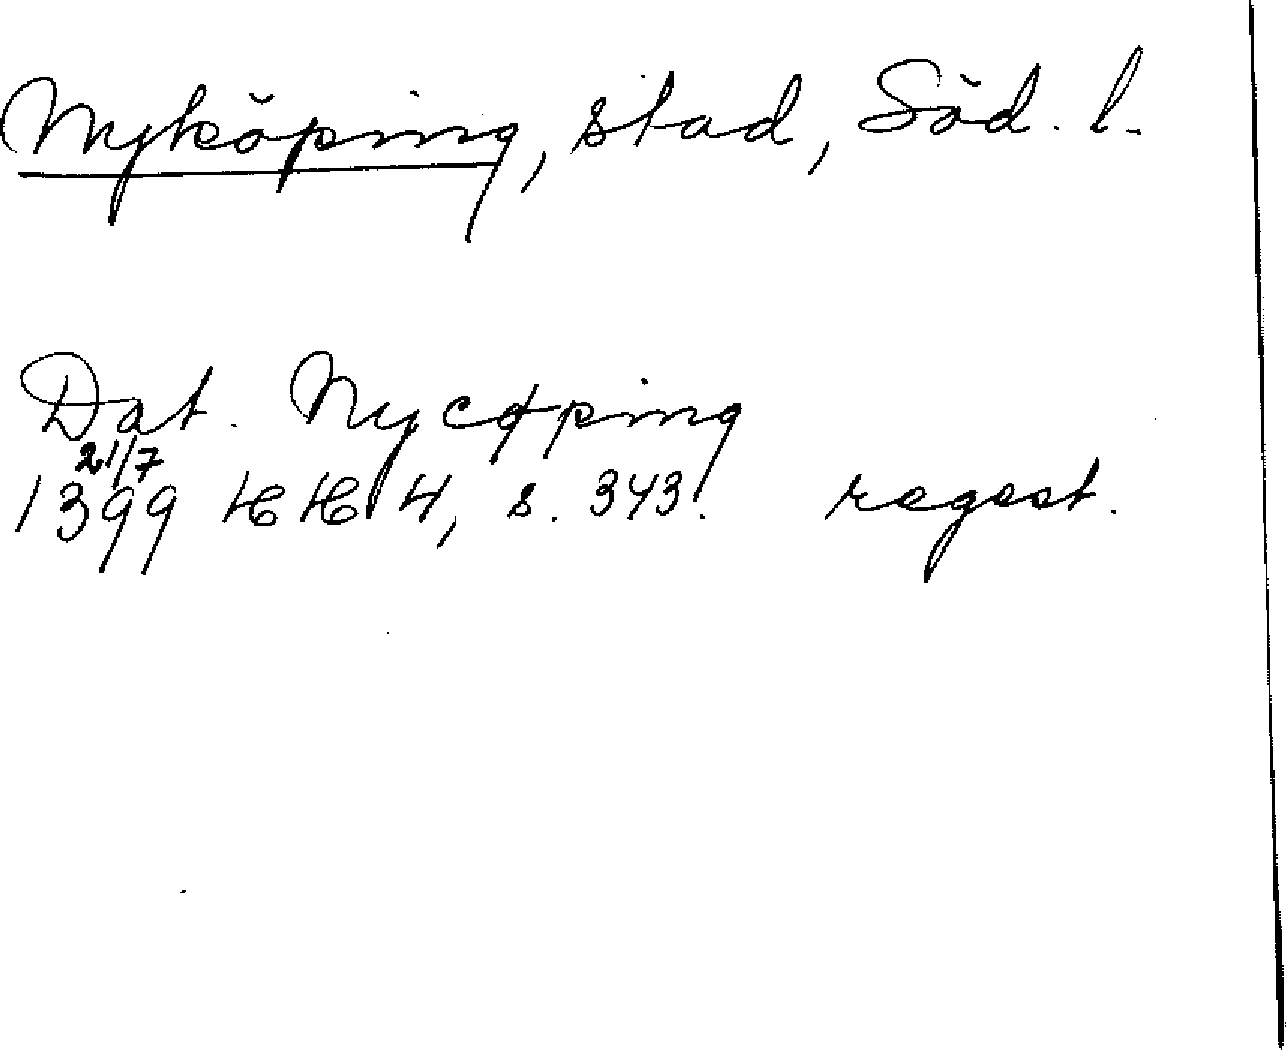 Nyköping, stad, Söd. l.
Dat. Nycøping
21/7
1399 HH 4, s. 343. regest.